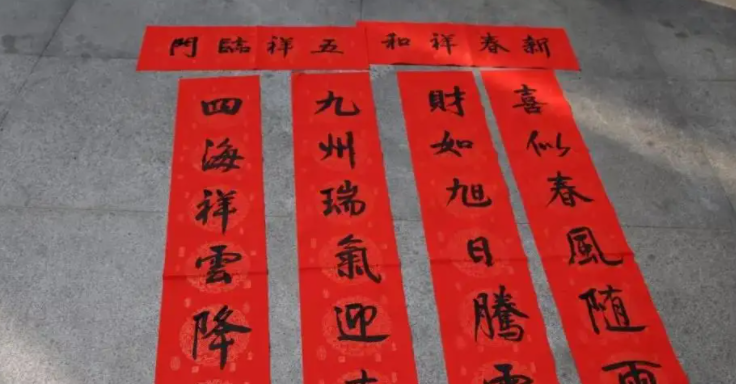 新春祥和
五祥臨門
喜似春風隨雨
財如旭日騰雲
九州瑞氣迎
四海祥雲降